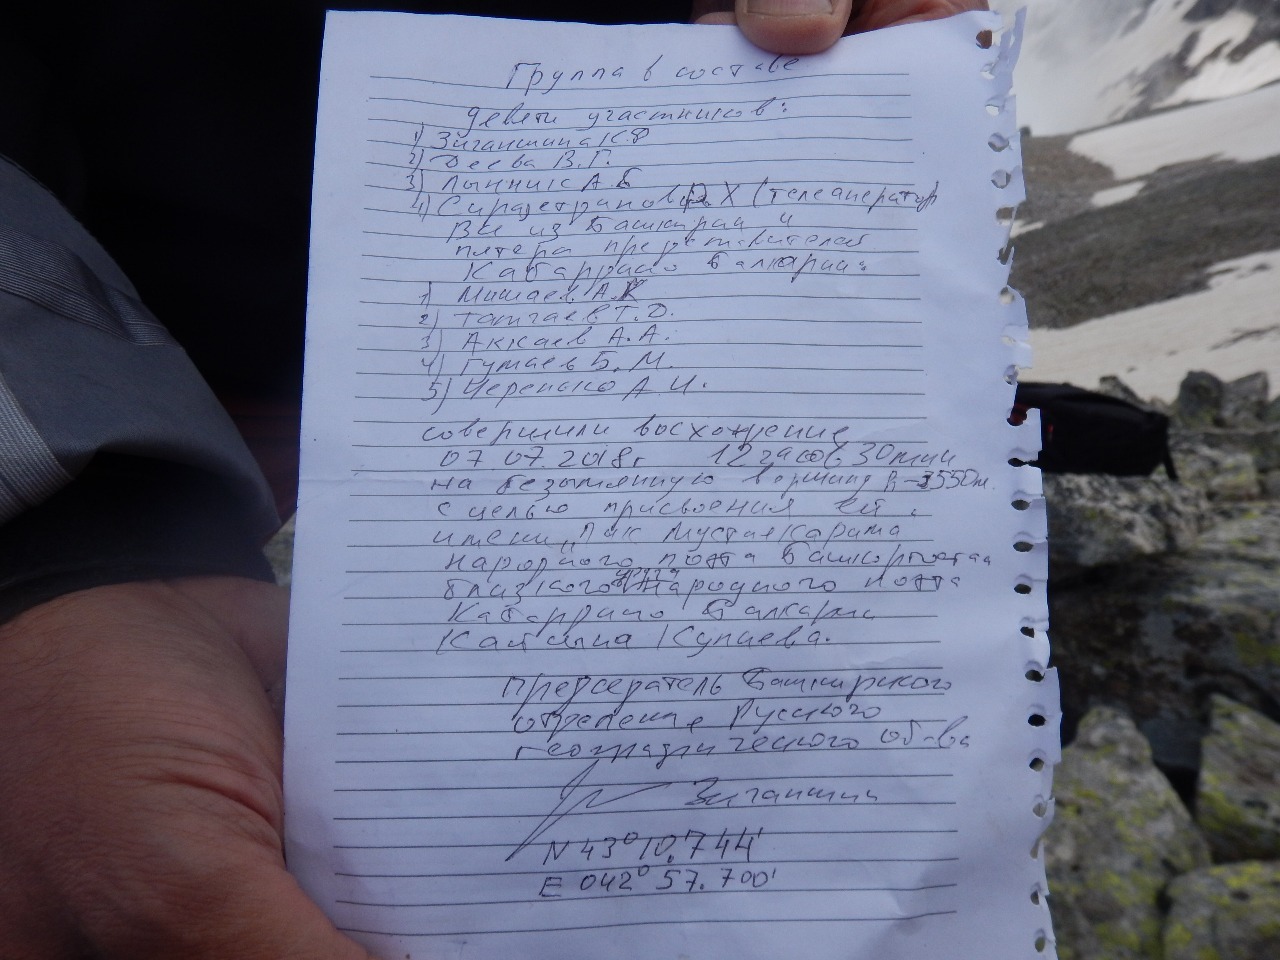 Группа в составе
девети участников:
1) Зиганшина К.Ф
2) Деева В.Г.
3) Лынник А.Б
4) Сиразетдинов Р Х (телеаператор)
Все из Башкирии и
пятера представителей
Кабардино Балкарии:
1) Мишаев А.К
2) Татчаев Т.О.
3) Аккаев А.А.
4) Гумаев Б.М.
5) Черенько А.И.
совершили восхождение
07.07.2018г 12 часов 30 мин
на безымянную вершину h-3550м.
с целью присвоения ей
имени "Пик Мустая Карима
народного поэта Башкортостан
близкого друга народного поэта
Кабардино Балкарии
Кайсына Кулиева.
Председатель Башкирского
отделение Русского
географического об-ва
Зиганшин
N 43°10.744'
E 042° 57.700'